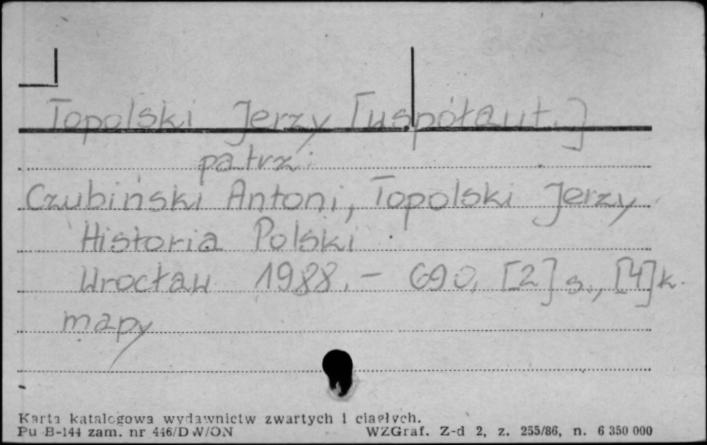 Topolski Jerzy [współaut.]
patrz:
Czubiński Antoni, Topolski Jerzy
Historia Polski
Wrocław 1988. – 690, [2] s., [4] k.
mapy
Karta katalogowa wydawnictw zwartych i ciągłych.
Pu B-144 zam. nr 446/DW/ON WZGraf. Z-d 2, z. 255/86, n. 6 350 000